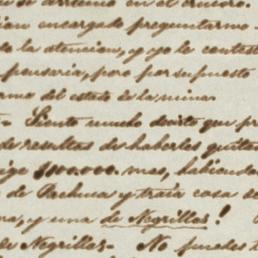 de se asistiese en el crucero.
ian encargado preguntarme
de la atencion, y yo le conteste
pensaria, pero por supuesto
rme del estado de la mina
- Siento mucho decirte que pr
de resultas de haberles quita
ige $100.000. mas, habiendo
de Pachuca y traía casa d
na, y una de Negrillas!
de Negrillas - No puedes t